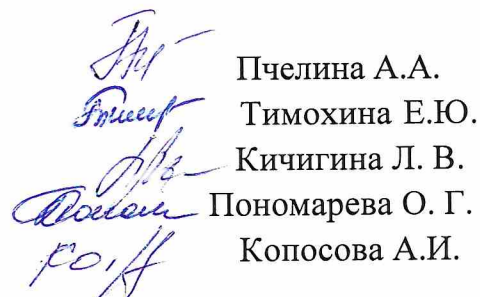 Пчелина А.А.
Тимохина Е.Ю.
Кичигина Л. В.
Пономарева О. Г.
Копосова А.И.